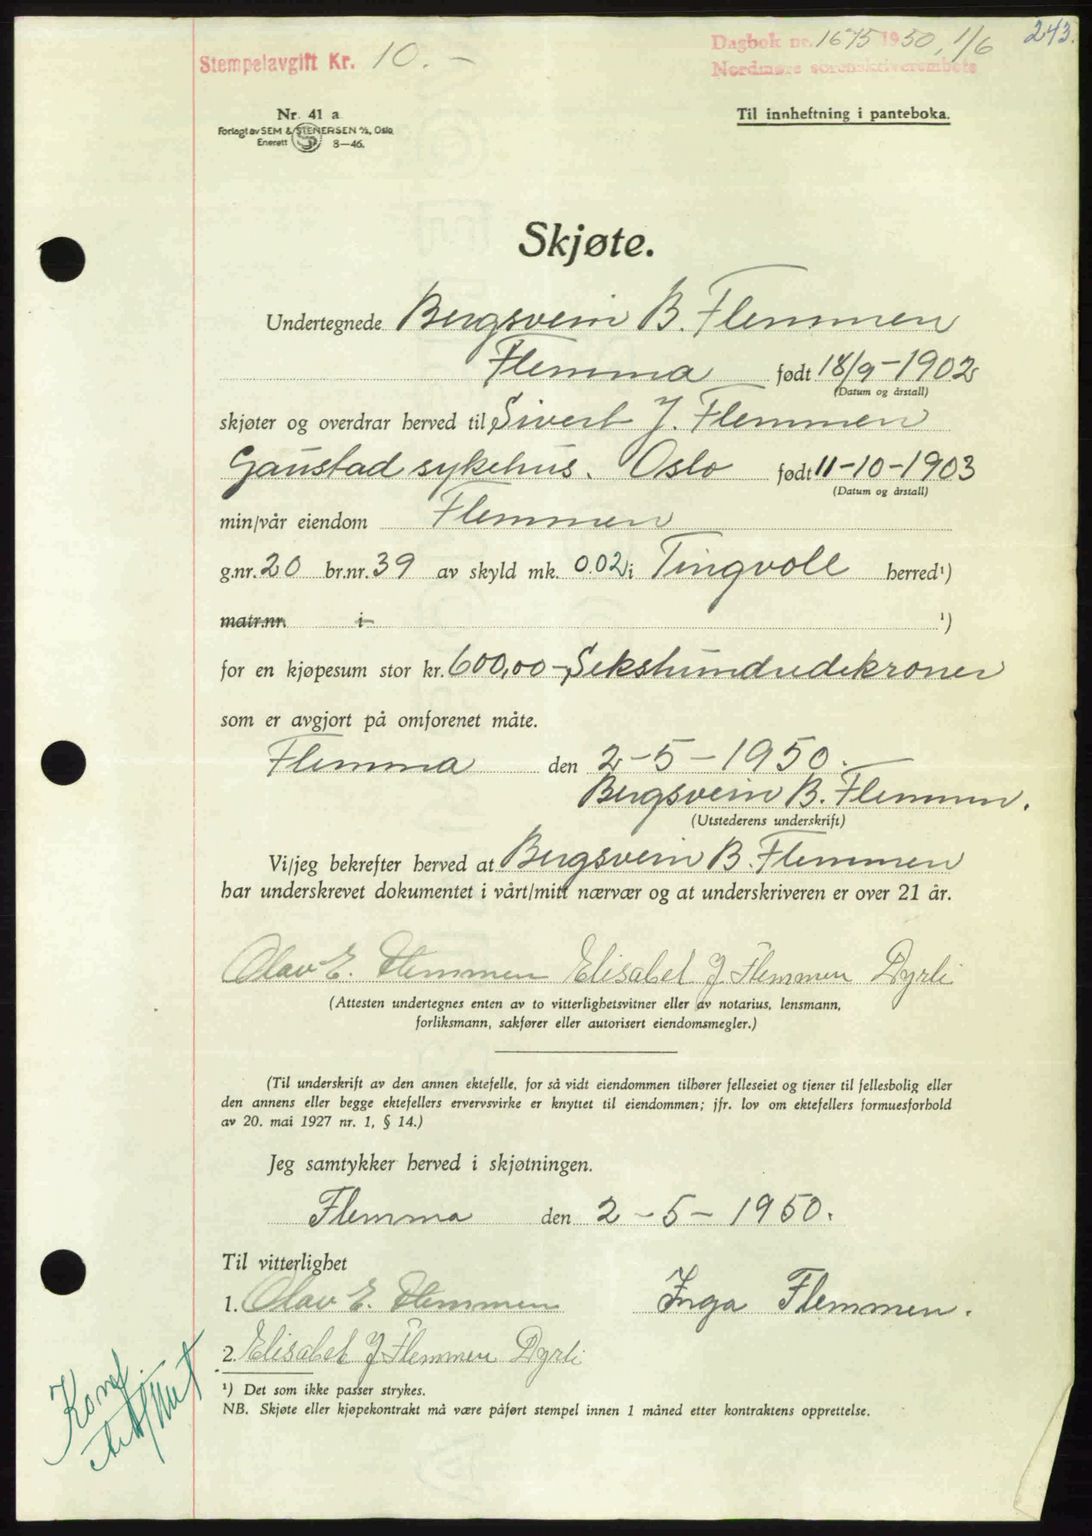 243.
Dagbok nr. 1675 1950, 1/6
Nordmøre sorenskriverembete
Stempelavgift Kr. 10.-
Nr. 41 a
Forlagt av SEM & STENERSEN A/S, Oslo
Enerett 8—46.
Til innheftning i panteboka.
Skjøte.
Undertegnede Bergsvein B. Flemmen
Flemma født 18/9-1902
(Datum og årstall)
skjøter og overdrar herved til Sivert J. Flemmen
Gaustad sykehus. Oslo født 11-10-1903
(Datum og årstall)
min/vår eiendom Flemmen
g.nr. 20 br.nr. 39 av skyld mk. 0.02 i Tingvoll herred¹)
matr.nr. i ¹)
for en kjøpesum stor kr. 600,00 - Sekshundredekroner
som er avgjort på omforenet måte.
Flemma den 2-5-1950.
Bergsvein B. Flemmen.
(Utstederens underskrift)
Vi/jeg bekrefter herved at Bergsvein B. Flemmen
har underskrevet dokumentet i vårt/mitt nærvær og at underskriveren er over 21 år.
Olav E. Flemmen Elisabet J. Flemmen Dyrli
(Attesten undertegnes enten av to vitterlighetsvitner eller av notarius, lensmann,
forliksmann, sakfører eller autorisert eiendomsmegler.)
(Til underskrift av den annen ektefelle, for så vidt eiendommen tilhører felleseiet og tjener til fellesbolig eller
den annens eller begge ektefellers ervervsvirke er knyttet til eiendommen; jfr. lov om ektefellers formuesforhold
av 20. mai 1927 nr. 1, § 14.)
Jeg samtykker herved i skjøtningen.
Flemma den 2-5-1950.
Til vitterlighet
1. Olav E. Flemmen Inga Flemmen.
2. Elisabet J Flemmen Dyrli
¹) Det som ikke passer strykes.
NB. Skjøte eller kjøpekontrakt må være påført stempel innen 1 måned etter kontraktens opprettelse.
Konf.